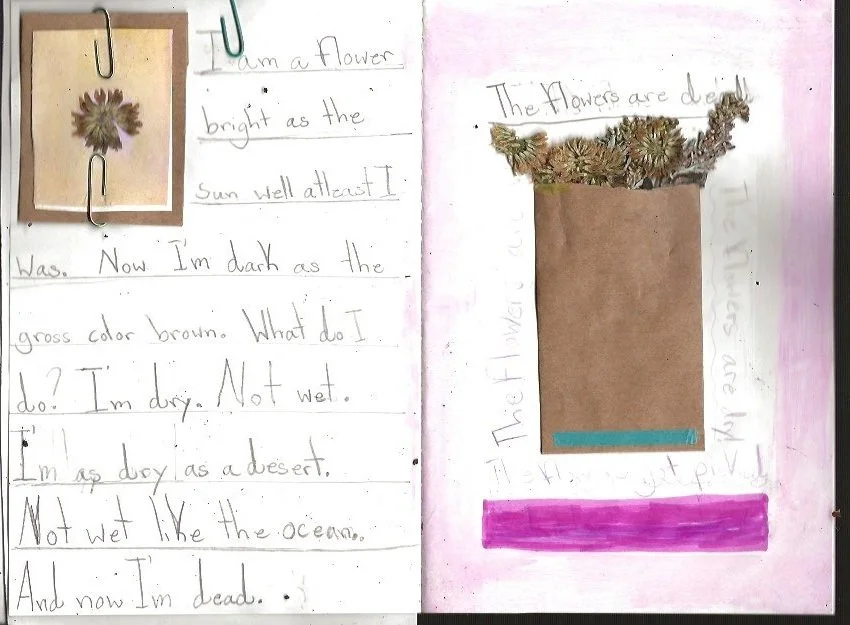 I am a flower
bright as the
sun well atleast I
was. Now I'm dark as the
gross color brown. What do I
do? I'm dry. Not wet.
I'm as dry as a desert.
Not wet like the ocean.
And now I'm dead.
The flowers are dead!
The flowers are
The flowers are dry